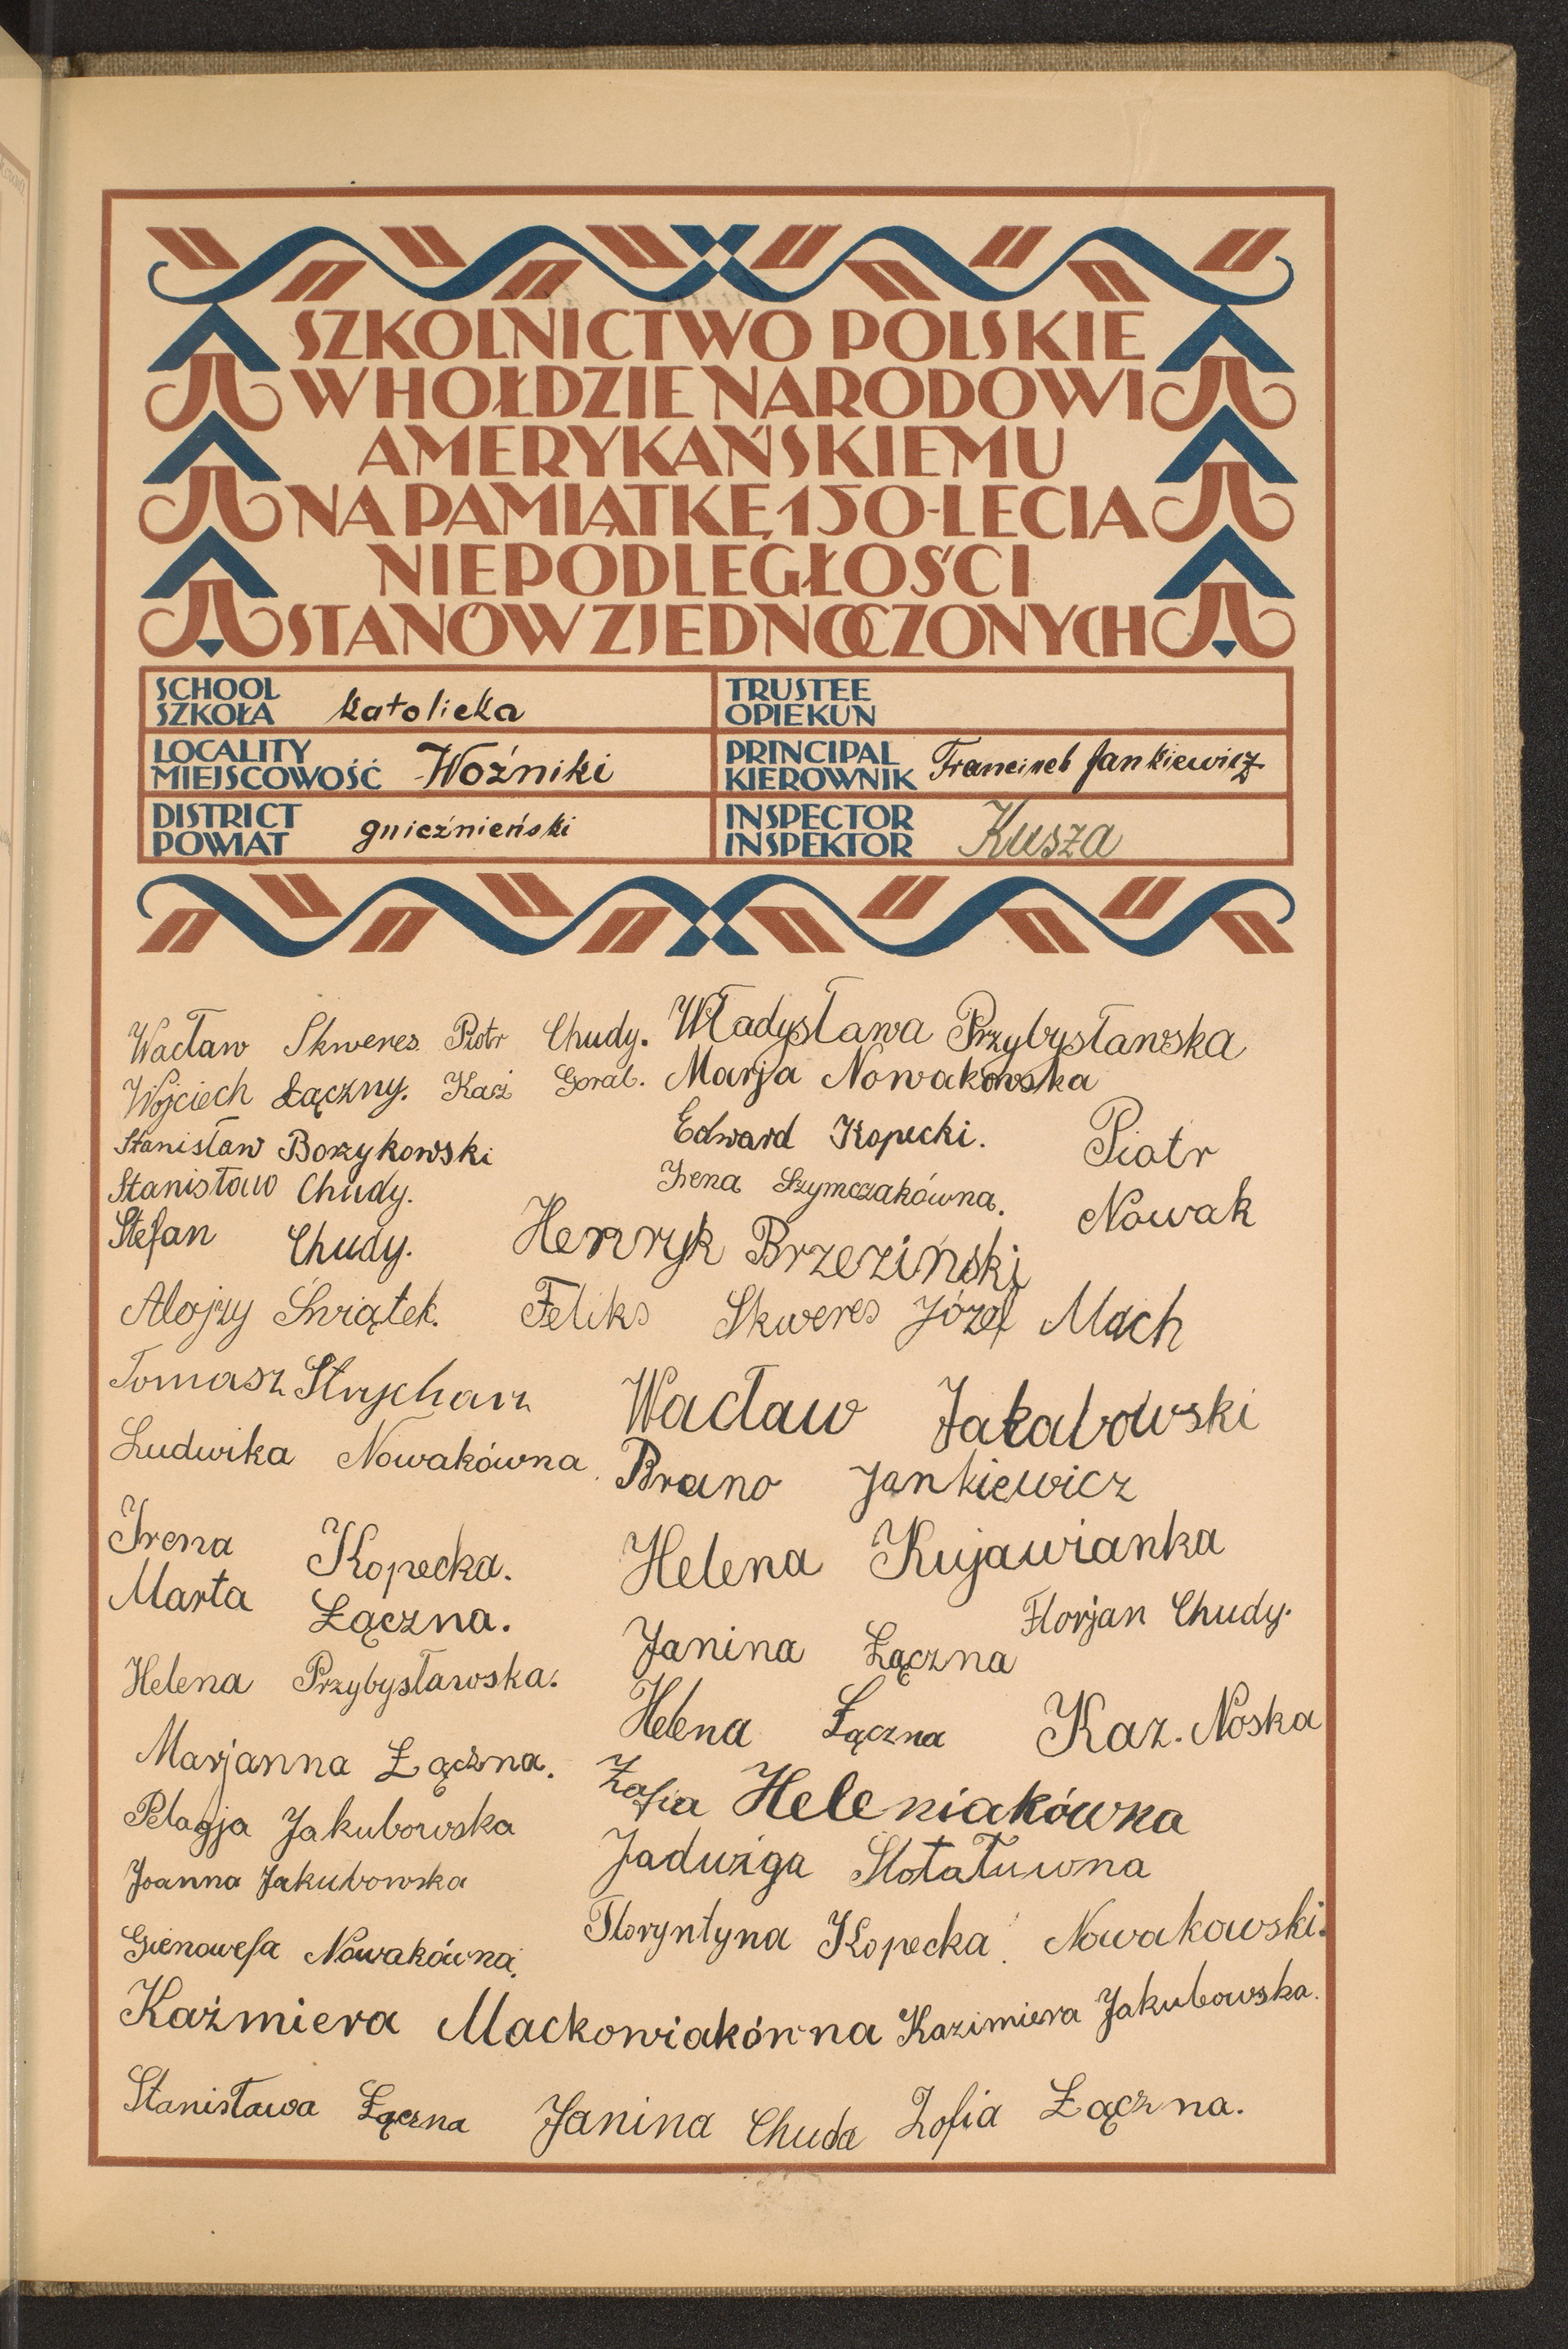 SZKOLNICTWO POLSKIE
W HOŁDZIE NARODOWI
AMERYKAŃSKIEMU
NA PAMIĄTKĘ 150-LECIA
NIEPODLEGŁOŚCI
STANÓW ZJEDNOCZONYCH
SCHOOL
SZKOŁA katolicka
TRUSTEE
OPIEKUN
LOCALITY
MIEJSCOWOŚĆ Woźniki
PRINCIPAL
KIEROWNIK Franciszek Jankiewicz
DISTRICT
POWIAT gnieźnieński
INSPECTOR
INSPEKTOR Kusza
Wacław Skweres Piotr Chudy. Władysława Przybysławska
Wojciech Łączny. Kaź Goral. Marja Nowakowska
Stanisław Borzykowski Edward Kopecki. Piotr
Stanisław Chudy. Irena Szymczakówna. Nowak
Stefan Chudy. Henryk Brzeziński
Alojzy Świątek. Feliks Skweres Józef Mach
Tomasz Strycharz Wacław Jakabowski
Ludwika Nowakówna. Bruno Jankiewicz
Irena Kopecka. Helena Kujawianka
Marta Łączna. Florjan Chudy.
Janina Łączna
Helena Przybysławska. Helena Łączna Kaz. Noska
Marjanna Łączna. Zofia Heleniakówna
Pelagja Jakubowska Jadwiga
Joanna Jakubowska
Gienowefa Nowakówna. Floryntyna Kopecka. Nowakowski.
Kaźmiera Mackowiakówna Kazimiera Jakubowska.
Stanisława Łączna Janina Chuda Zofia Łączna.